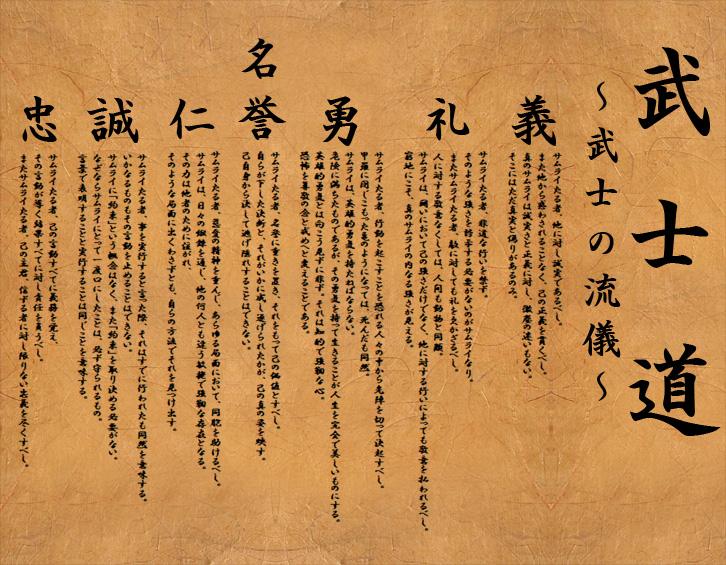 武士道
～武士の流儀～
義
サムライたる者、他に対し誠実であるべし。
また他から惑わされることなく、己の正義を貫くべし。
真のサムライは誠実さと正義に対し、微塵の迷いもない。
そこにはただ真実と偽りがあるのみ。
礼
サムライたる者、非道な行いを禁ず。
そのような強さを行事する必要がないのがサムライなり。
またサムライたる者、敵に対しても礼を欠かざるべし。
人に対する敬意なくしては、人間も動物と同類。
サムライは、闘いにおいて己の強さだけでなく、他に対する行いによっても敬意を払われるべし。
窮地にこそ、真のサムライの内なる強さが見える。
勇
サムライたる者、行動を起こすことを恐れる人々の中から危険を切って決起すべし。
甲羅に閉じこもった亀のようになっては、死んだも同然。
サムライは、英雄的勇気を持たねばならない。
危険に満ちたものであるが、その勇気を持って生きることが人生を完全で美しいものにする。
英雄的勇気とは向こう見ずに非ず。それは知的で強靭な心。
恐怖を尊敬の念と戒めへと変えることである。
名誉
サムライたる者、名誉に重きを置き、それをもって己の価値とすべし。
自らが下した決断と、それがいかに成し遂げられたかが、己の真の姿を映す。
己自身から決して逃げ隠れすることはできない。
仁
サムライたる者、慈愛の精神を重んじ、あらゆる局面において、同胞を助けるべし。
サムライは、日々の鍛錬を通し、他の何人とも違う敏捷で強靭な存在となる。
その力は他者のために注がれ、
そのような局面に出くわさずとも、自らの方法でそれを見つけ出す。
誠
サムライたる者、事を実行すると言った際、それはすでに行われたも同然を意味する。
いかなるものもその言動を止めることはできない。
サムライに「約束」という概念はなく、また「約束」を取り決める必要がない。
なぜならサムライにとって一度口にしたことは、必ず守られるもの。
言葉で表明することと実行することは同じことを意味する。
忠
サムライたる者、己の言動すべてに義務を覚え、
その言動が導く結果すべてに対し責任を負うべし。
またサムライたる者、己の主君、信ずる者に対し限りない忠義を尽くすべし。